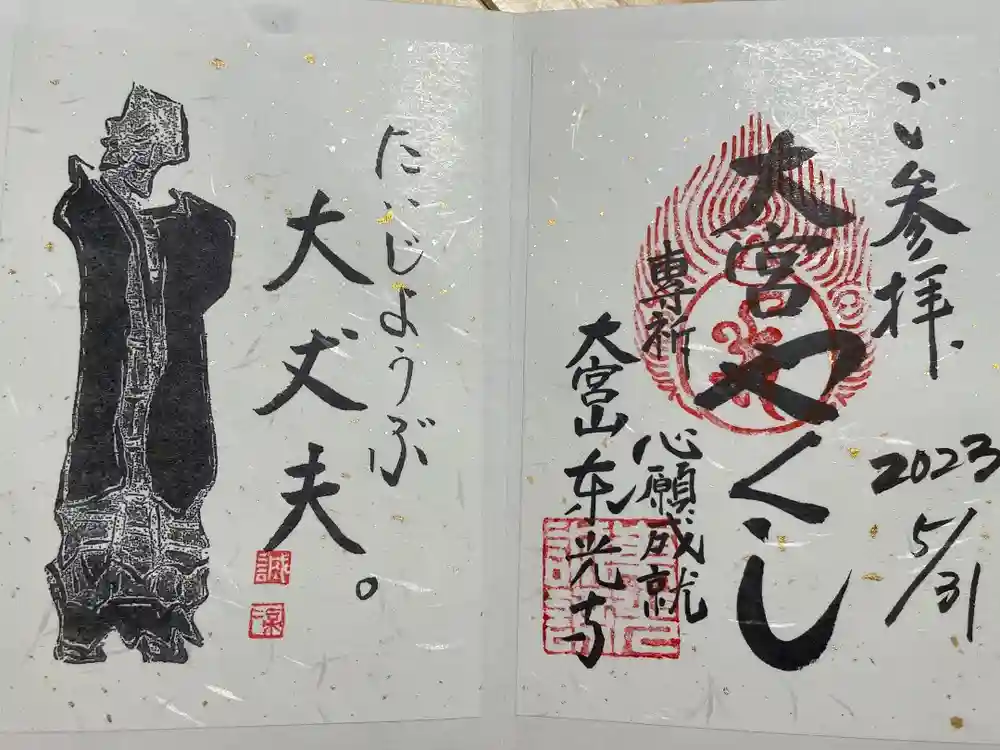 ご参拝.
2023
5/31
大宮やくし
専祈
心願成就
大宮山東光寺
だいじょうぶ
大丈夫。
誠